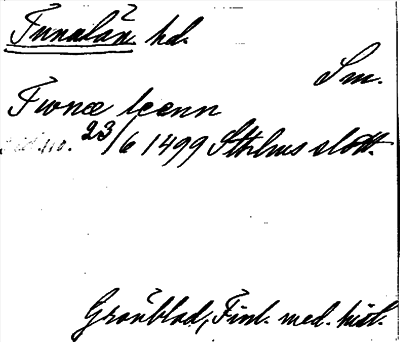 Tunalän hd.
Sm.
Twnæ læenn
23/6 1499 Sthlms slott.
Grönblad, Finl. med. hist.